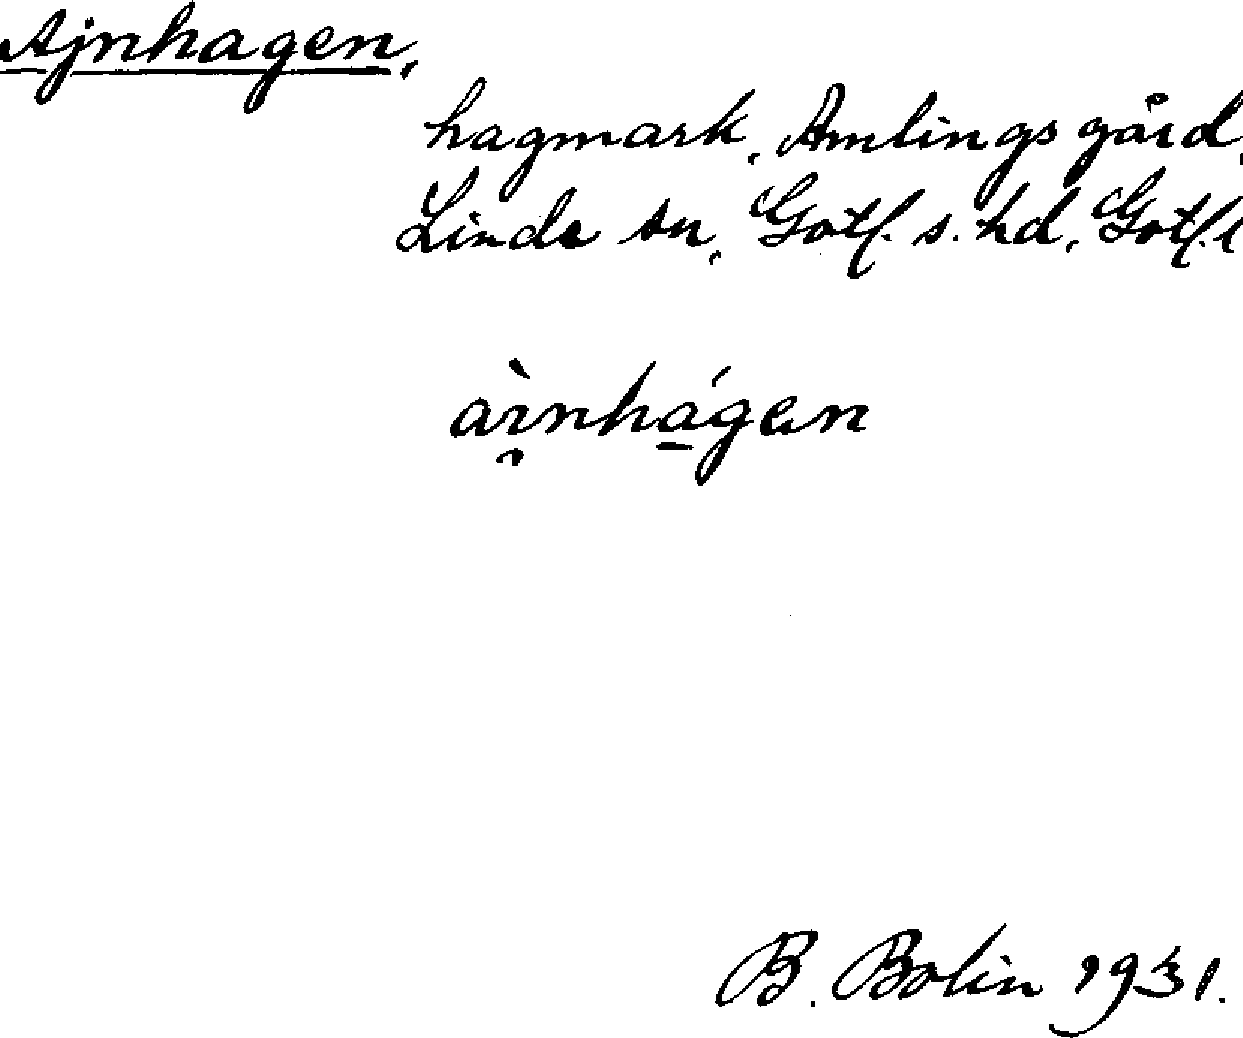 Ajnhagen,
hagmark, Amlings gård,
Linde sn, Gotl. s. hd, Gotl. l
B. Bolin 1931.